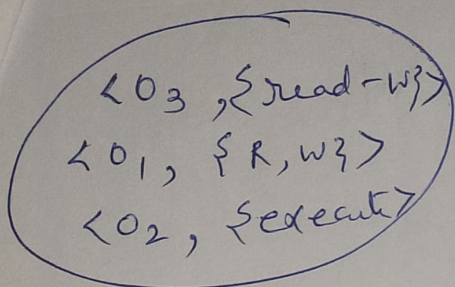 <O3, {read-w}>
<O1, {R, W}>
<O2, {execute>